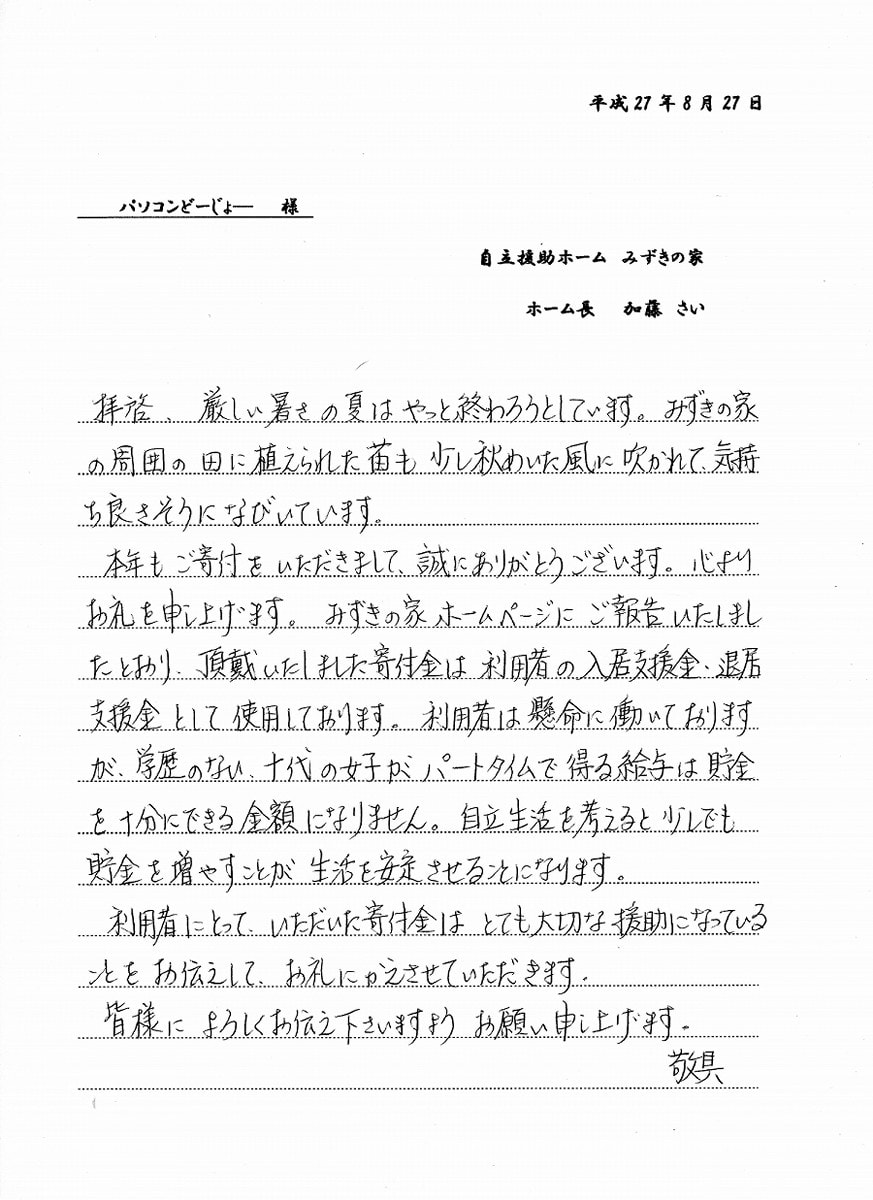 平成27年8月27日
パソコンどーじょー 様
自立援助ホーム みずきの家
ホーム長 加藤 さい
拝啓、厳しい暑さの夏はやっと終わろうとしています。みずきの家
の周囲の田に植えられた苗も少し秋めいた風に吹かれて、気持
ち良さそうになびいています。
本年もご寄付をいただきまして、誠にありがとうございます。心より
お礼を申し上げます。みずきの家ホームページにご報告いたしまし
たとおり、頂戴いたしました寄付金は利用者の入居支援金・退居
支援金として使用しております。利用者は懸命に働いております
が、学歴のない、十代の女子がパートタイムで得る給与は貯金
を十分にできる金額になりません。自立生活を考えると少しでも
貯金を増やすことが生活を安定させることになります。
利用者にとって、いただいた寄付金はとても大切な援助になっている
ことをお伝えして、お礼にかえさせていただきます。
皆様によろしくお伝え下さいますようお願い申し上げます。
敬具